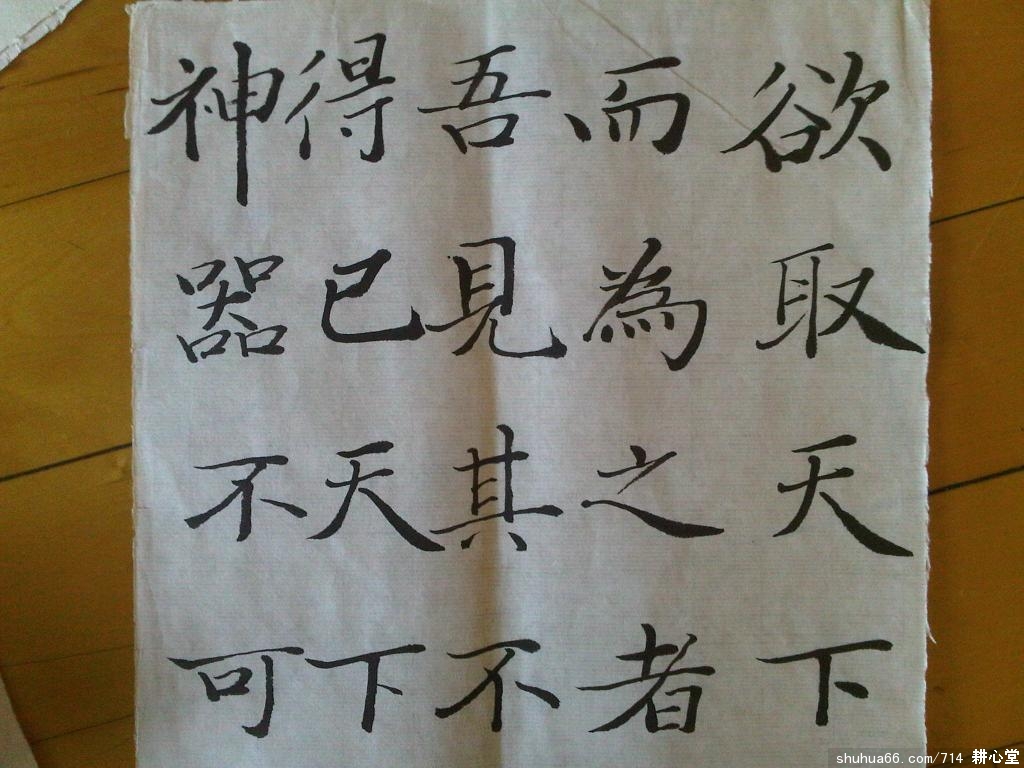 欲取天下
而為之者
吾見其不
得已天下
神器不可
shuhua66.com/714 耕心堂